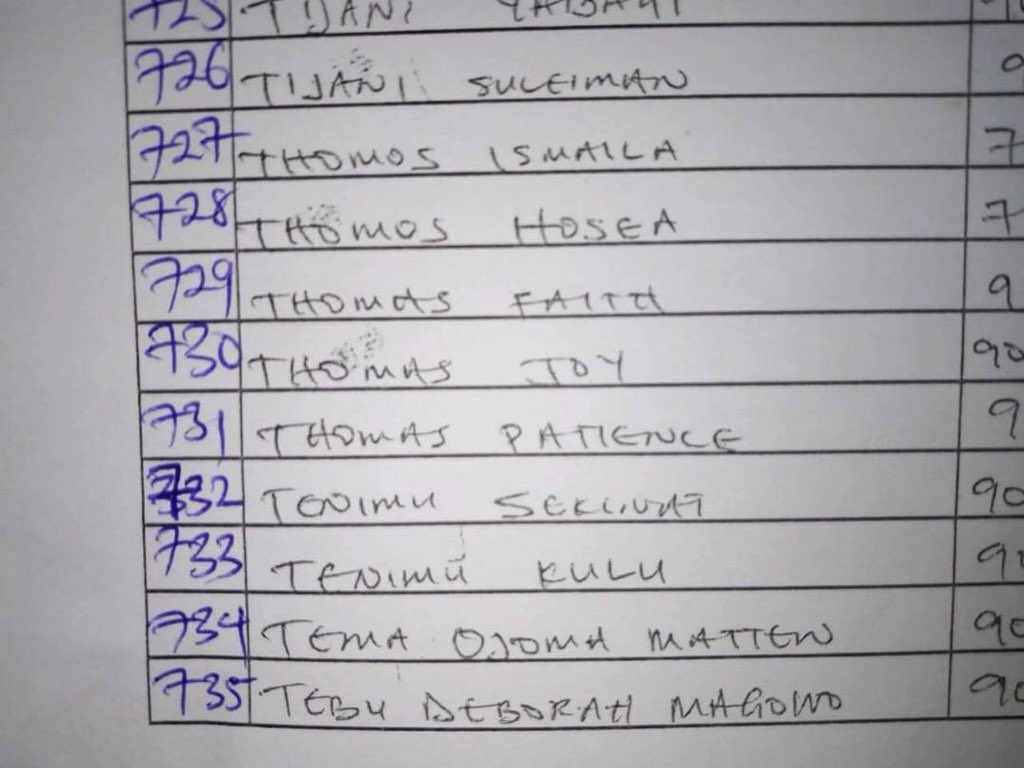 725 TIJANI
726 TIJANI SULEIMAN 9
727 THOMOS ISMAILA 7
728 THOMOS HOSEA 7
729 THOMAS FAITH 9
730 THOMAS JOY 90
731 THOMAS PATIENCE 9
732 TENIMU
733 TENIMU KULU 90
734 TEMA OJOMA MATTEW 90
735 TEBU DEBORAH MAGOWO 90